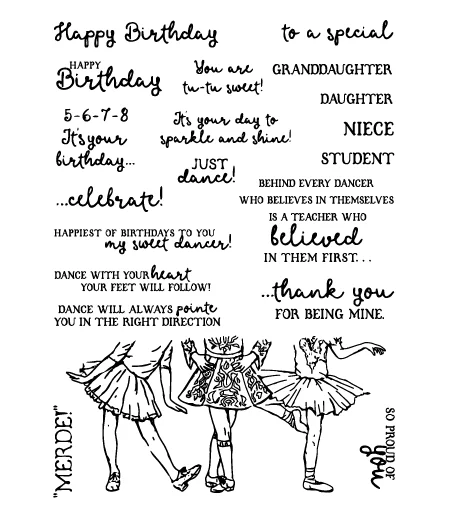 Happy Birthday
to a special
HAPPY
Birthday
You are
tu-tu sweet!
GRANDDAUGHTER
DAUGHTER
NIECE
STUDENT
5-6-7-8
It's your
birthday...
It's your day to
sparkle and shine!
JUST
dance!
...celebrate!
BEHIND EVERY DANCER
WHO BELIEVES IN THEMSELVES
IS A TEACHER WHO
believed
IN THEM FIRST...
HAPPIEST OF BIRTHDAYS TO YOU
my sweet dancer!
DANCE WITH YOUR heart
YOUR FEET WILL FOLLOW!
...thank you
FOR BEING MINE.
DANCE WILL ALWAYS pointe
YOU IN THE RIGHT DIRECTION
"MERDE!"
SO PROUD OF
you